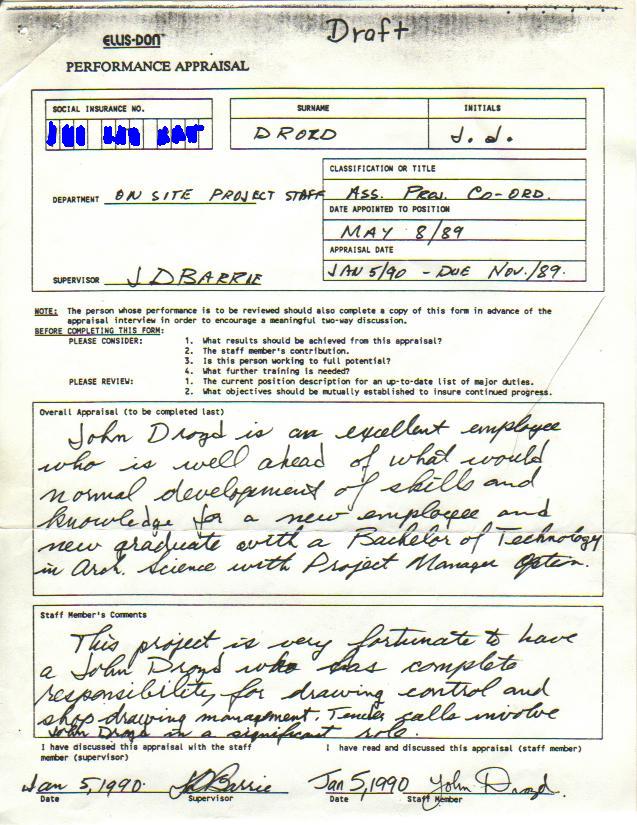 Draft
ELLIS-DON
PERFORMANCE APPRAISAL
SOCIAL INSURANCE NO.
SURNAME
INITIALS
DROZD
J. J.
CLASSIFICATION OR TITLE
DEPARTMENT ON SITE PROJECT STAFF
ASS. PROJ. CO-ORD.
DATE APPOINTED TO POSITION
MAY 8/89
APPRAISAL DATE
SUPERVISOR J D BARRIE
JAN 5/90 - DUE NOV./89.
NOTE: The person whose performance is to be reviewed should also complete a copy of this form in advance of the
appraisal interview in order to encourage a meaningful two-way discussion.
BEFORE COMPLETING THIS FORM:
PLEASE CONSIDER: 1. What results should be achieved from this appraisal?
2. The staff member's contribution.
3. Is this person working to full potential?
4. What further training is needed?
PLEASE REVIEW: 1. The current position description for an up-to-date list of major duties.
2. What objectives should be mutually established to insure continued progress.
Overall Appraisal (to be completed last)
John Drozd is an excellent employee
who is well ahead of what would
normal development of skills and
knowledge for a new employee and
new graduate with a Bachelor of Technology
in Arch. Science with Project Manager Option.
Staff Member's Comments
This project is very fortunate to have
a John Drozd who has complete
responsibility for drawing control and
shop drawing management. Tender calls involve
John Drozd in a significant role.
I have discussed this appraisal with the staff
member (supervisor)
I have read and discussed this appraisal (staff member)
Jan 5, 1990. JD Barrie Jan 5, 1990 John Drozd.
Date Supervisor Date Staff Member